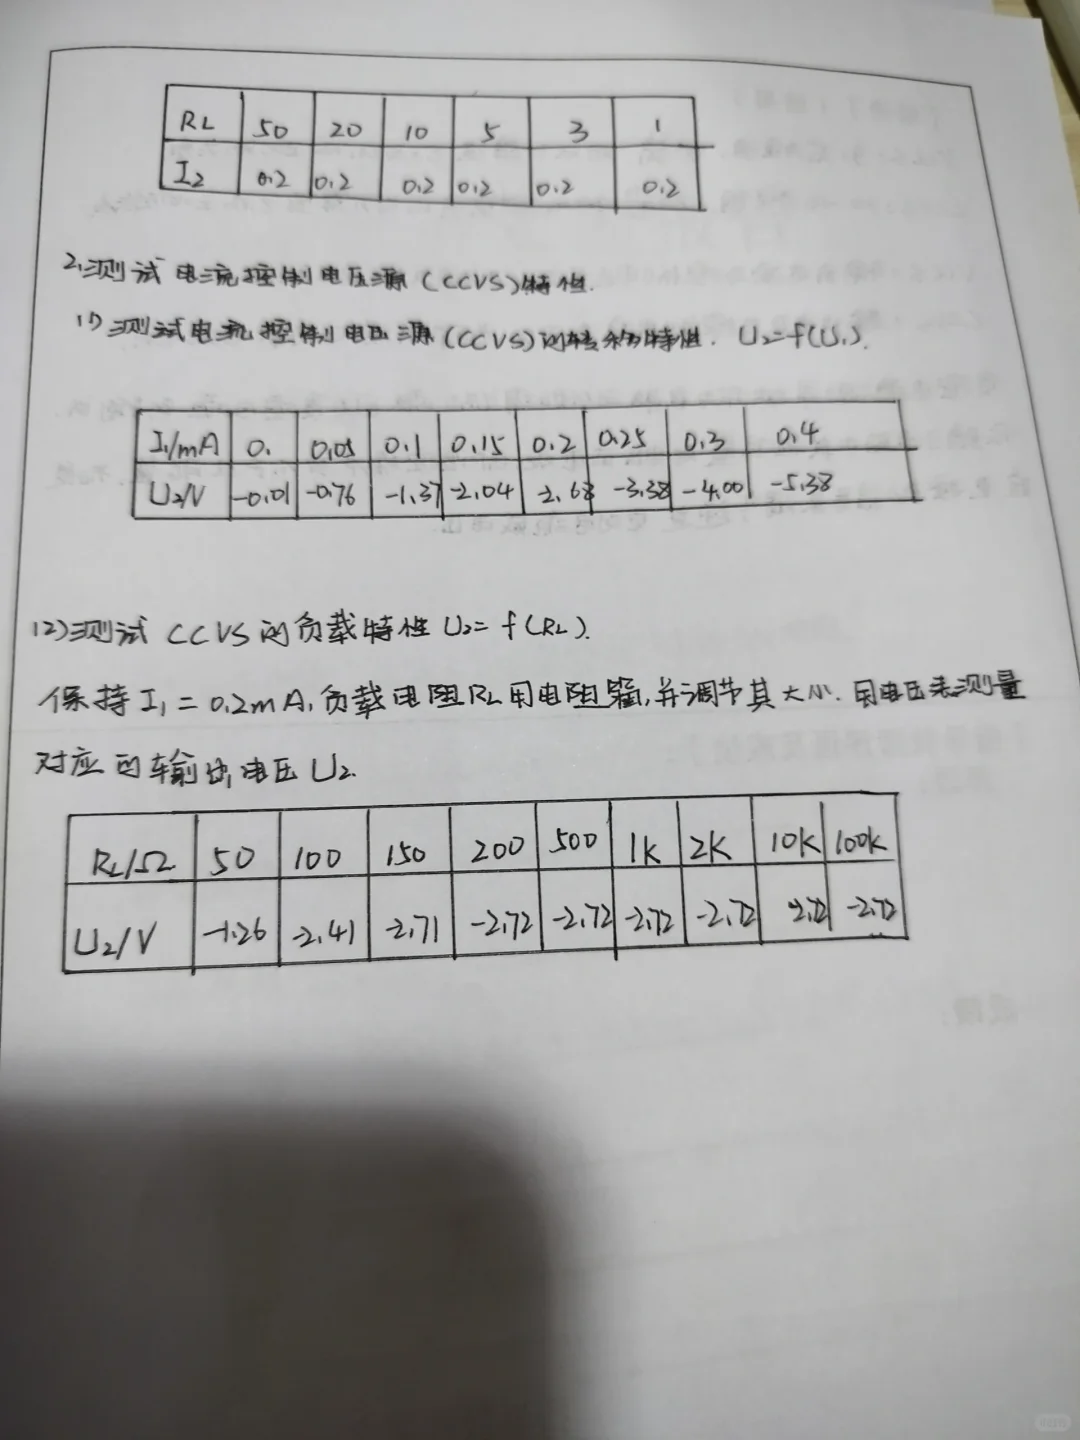 RL 50 20 10 5 3 1
I2 0.2 0.2 0.2 0.2 0.2 0.2
2.测试电流控制电压源(CCVS)特性.
(1)测试电流控制电压源(CCVS)的转移特性. U2=f(U1).
I1/mA 0. 0.05 0.1 0.15 0.2 0.25 0.3 0.4
U2/V -0.01 -0.76 -1.37 -2.04 -2.68 -3.38 -4.00 -5.38
(2)测试CCVS的负载特性U2=f(RL).
保持I1=0.2mA,负载电阻RL用电阻箱,并调节其大小.用电压表测量
对应的输出电压U2.
RL/Ω 50 100 150 200 500 1K 2K 10K 100K
U2/V -1.26 -2.41 -2.71 -2.72 -2.72 -2.72 -2.72 2.72 -2.72